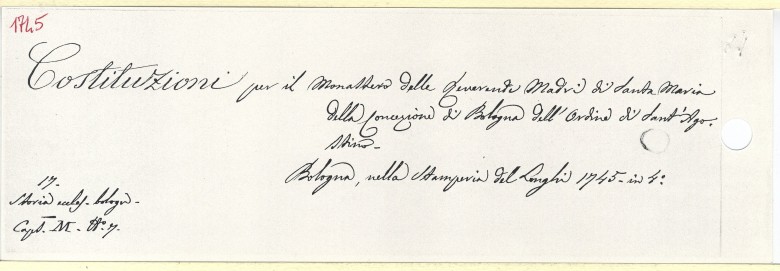 1745
Costituzioni per il Monastero delle Reverende Madri di Santa Maria
della Concezione di Bologna dell'Ordine di Sant'Ago-
stino-
Bologna, nella Stamperia del Longhi 1745- in 4º
17-
Storia eccles- bologn-
Caps- M- Nº 7.